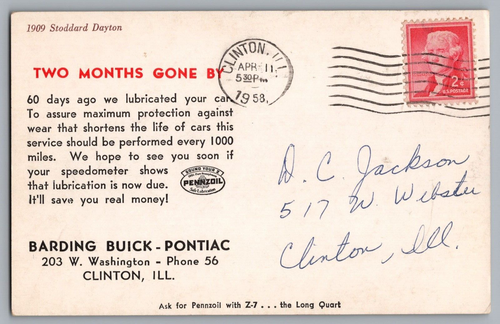 1909 Stoddard Dayton
CLINTON, ILL.
APR 11
5 30 PM
1958
2¢
U.S. POSTAGE
TWO MONTHS GONE BY
60 days ago we lubricated your car.
To assure maximum protection against
wear that shortens the life of cars this
service should be performed every 1000
miles. We hope to see you soon if
your speedometer shows
that lubrication is now due.
It'll save you real money!
SOUND YOUR Z
PENNZOIL
Safe Lubrication
D. C. Jackson
517 W. Webster
Clinton, Ill.
BARDING BUICK - PONTIAC
203 W. Washington - Phone 56
CLINTON, ILL.
Ask for Pennzoil with Z-7 . . . the Long Quart